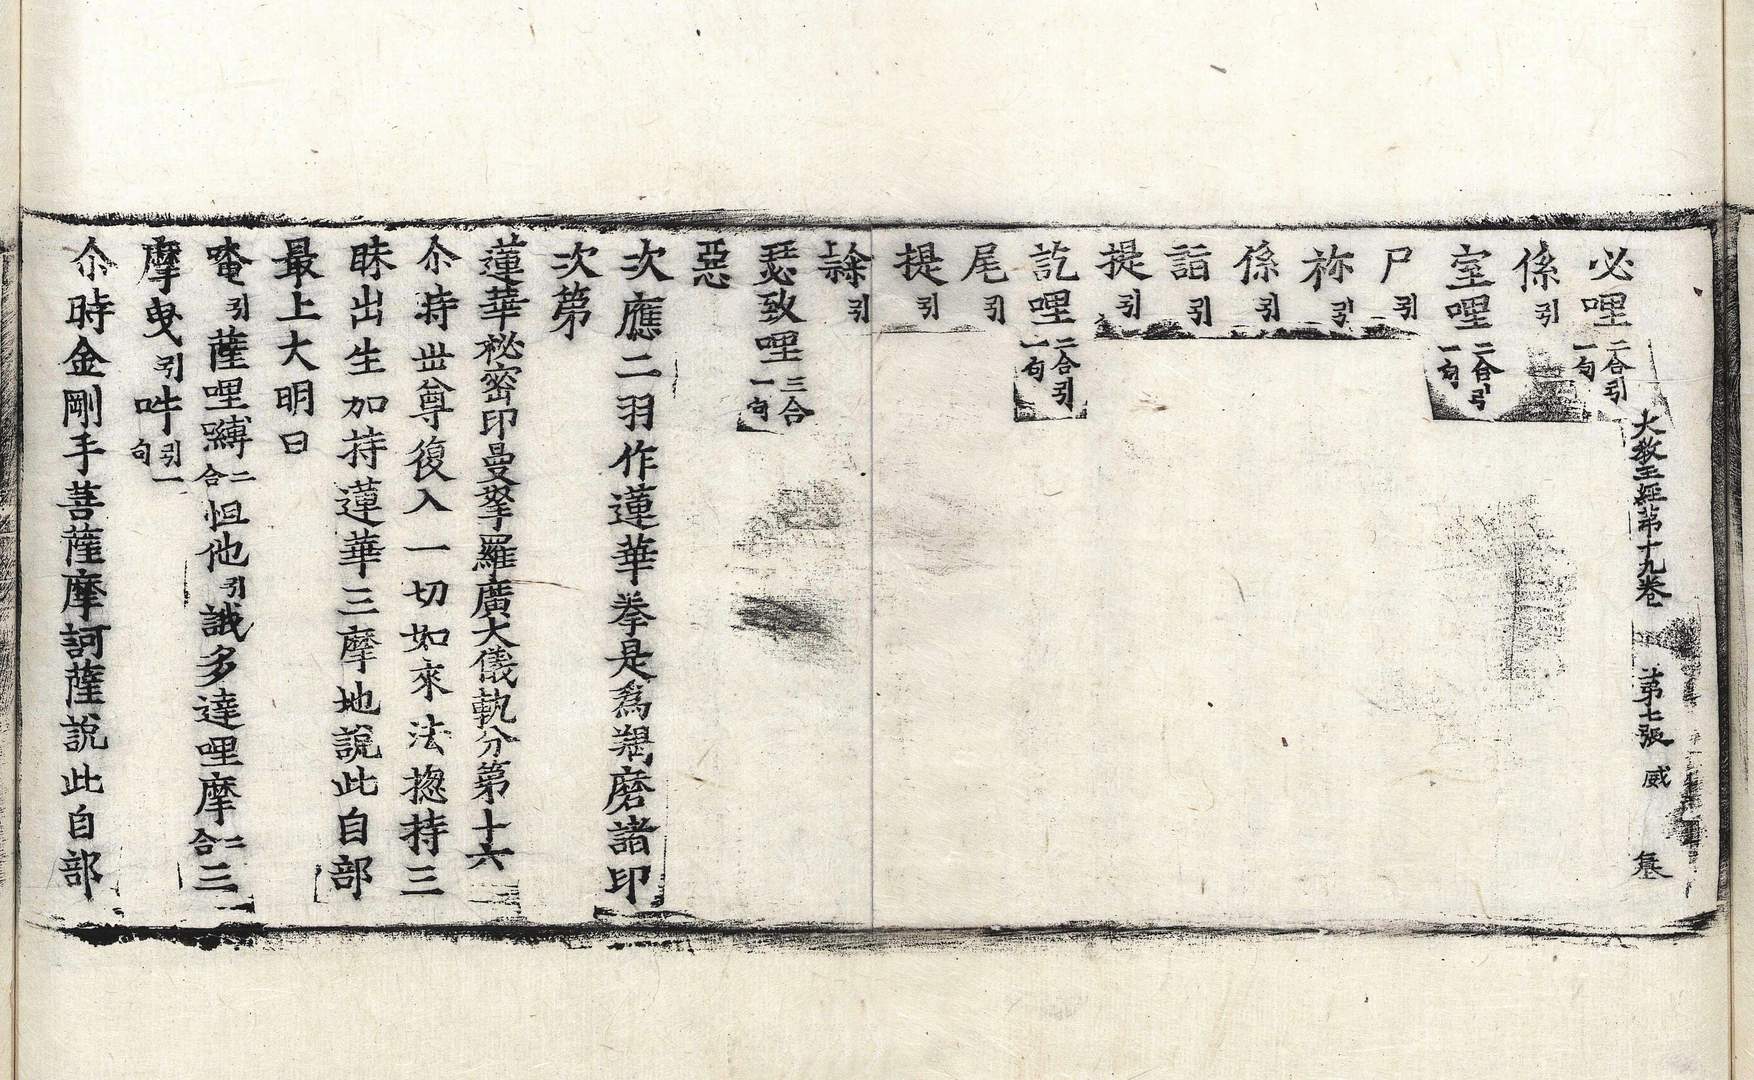 大教王經第十九卷 第七張 威
必哩二合引一句
係引
室哩二合引一句
尸引
祢引
係引
詣引
提引
訖哩二合引一句
尾引
提引
䤈引
瑟致哩三合一句
惡
次應二羽作蓮華拳是爲羯磨諸印
次第
蓮華祕密印曼拏羅廣大儀軌分第十六
尒時世尊復入一切如來法揔持三
昧出生加持蓮華三摩地說此自部
最上大明曰
唵引薩哩嚩二合怛他引誐多達哩摩二合三
摩曳引吽引一句
尒時金剛手菩薩摩訶薩說此自部